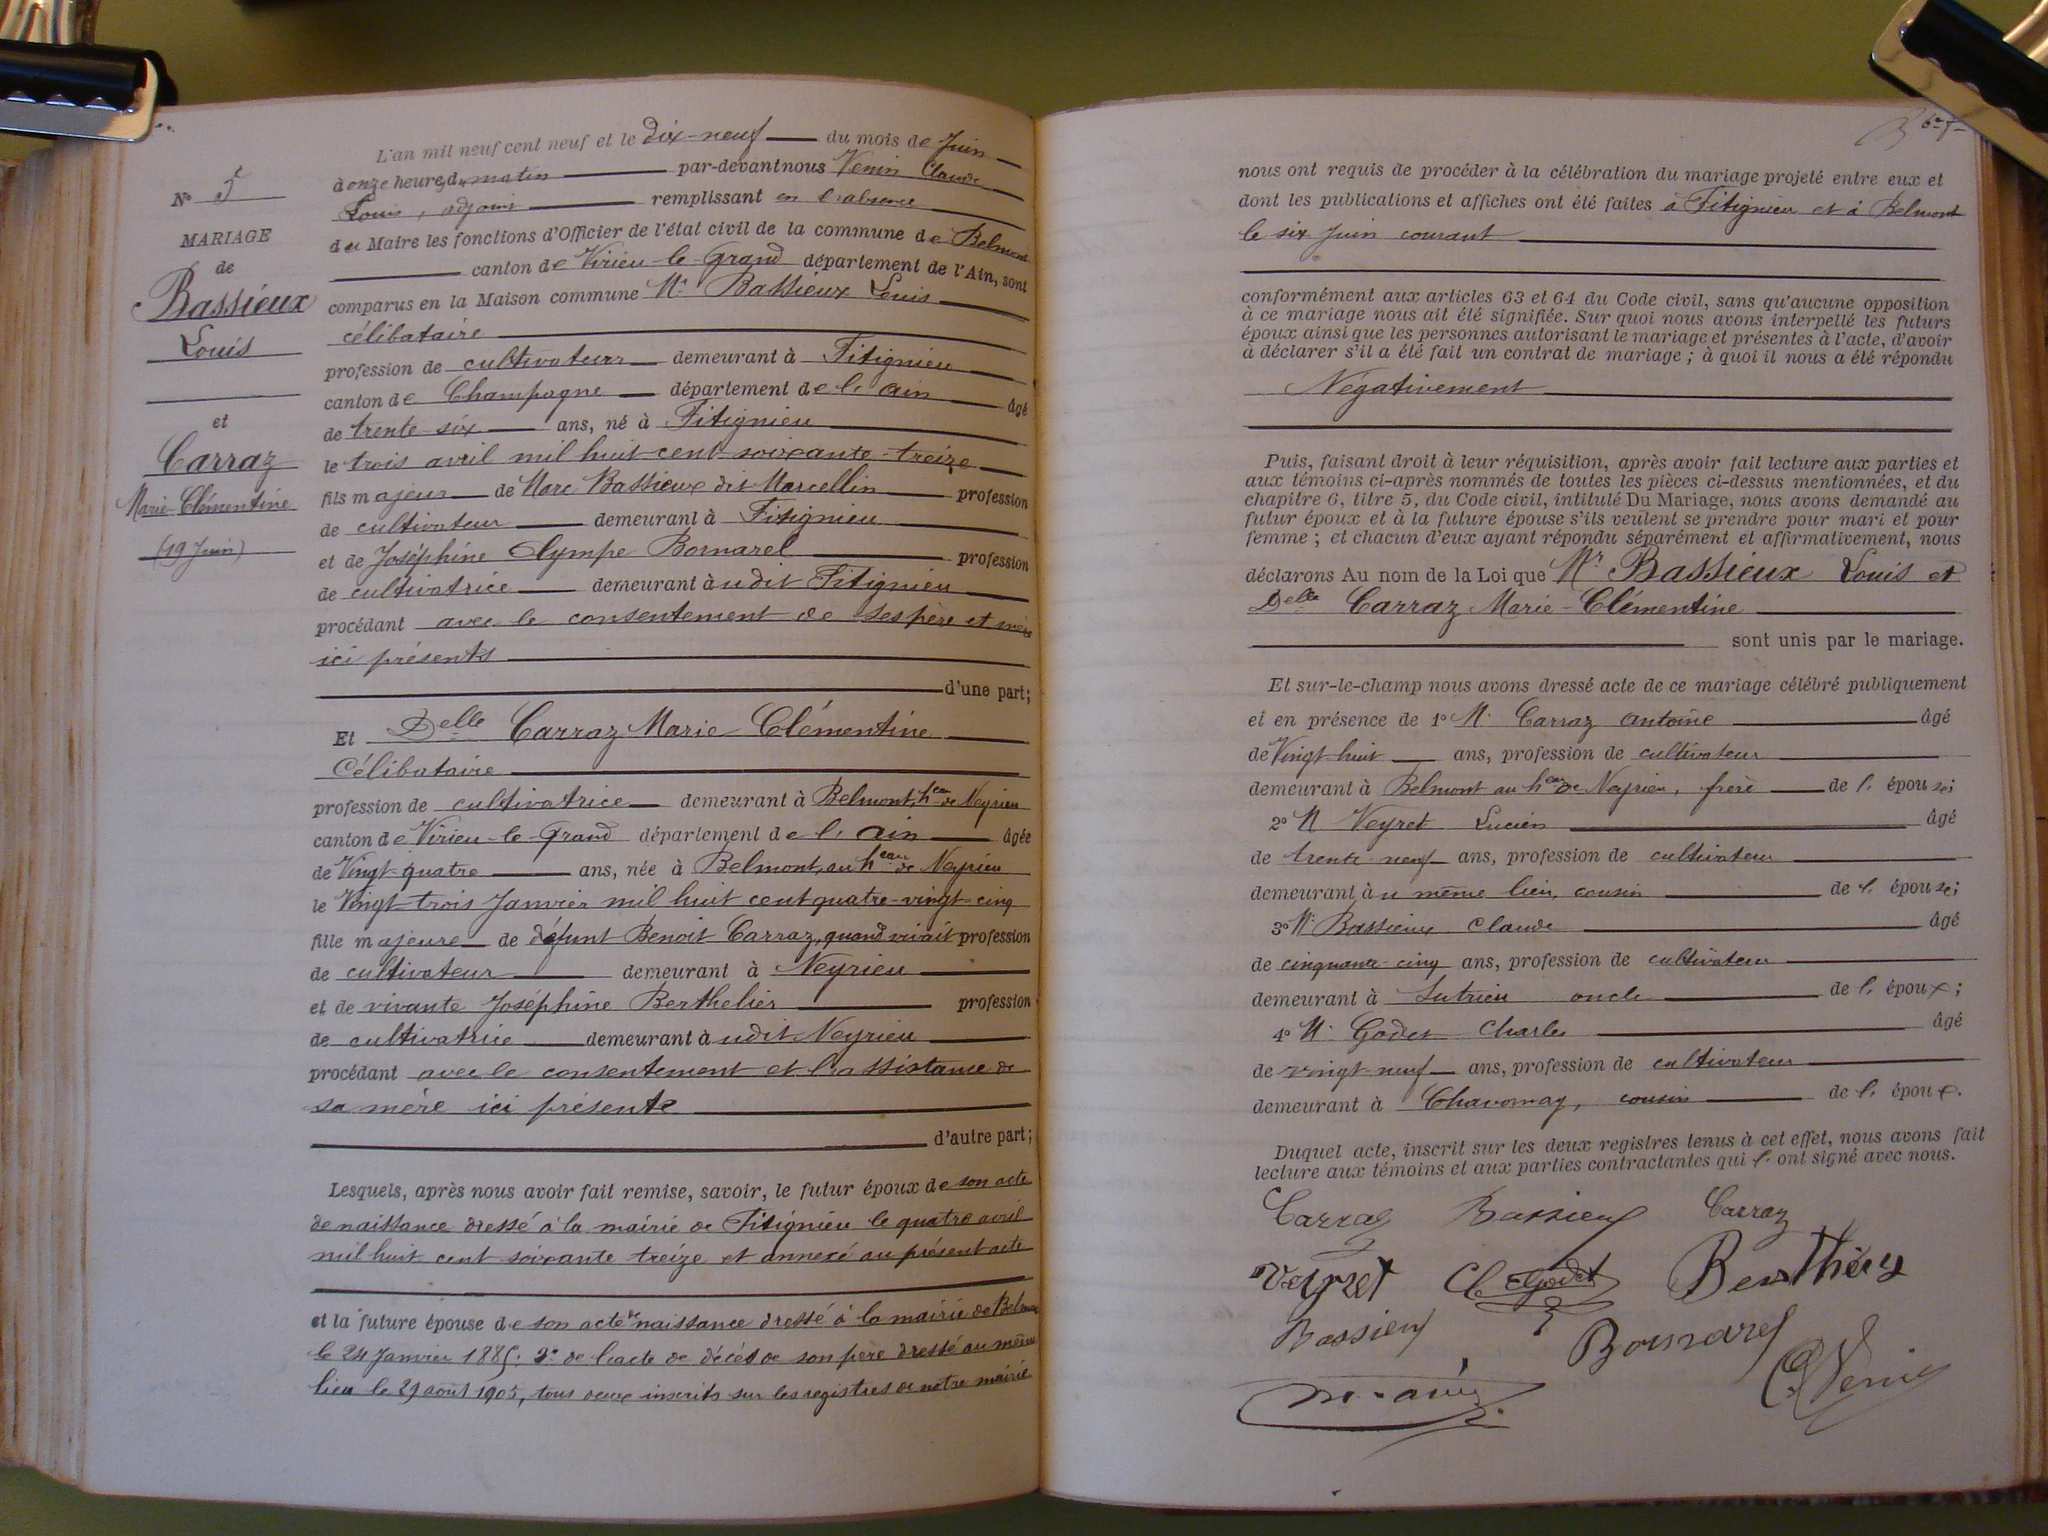 L'an mil neuf cent neuf et le dix-neuf du mois de Juin
à onze heures du matin par-devant nous Venin Claude
Louis, adjoint remplissant en l'absence
du Maire les fonctions d'Officier de l'état civil de la commune de Belmont
canton de Virieu-le-Grand département de l'Ain, sont
comparus en la Maison commune Mr Bassieux Louis
célibataire
profession de cultivateur demeurant à Fitignieu
canton de Champagne département de l'ain âgé
de trente six ans, né à Fitignieu
le trois avril mil huit cent soixante-treize
fils majeur de Marc Bassieux dit Marcellin profession
de cultivateur demeurant à Fitignieu
et de Joséphine Olympe Bornarel profession
de cultivatrice demeurant à udit Fitignieu
procédant avec le consentement de ses père et mère
ici présents
d'une part;
Et Delle Carraz Marie Clémentine
Célibataire
profession de cultivatrice demeurant à Belmont, heau de Neyrieu
canton de Virieu-le-Grand département de l'ain âgée
de Vingt-quatre ans, née à Belmont, au heau de Neyrieu
le Vingt-trois Janvier mil huit cent quatre-vingt-cinq
fille majeure de défunt Benoit Carraz, quand vivait profession
de cultivateur demeurant à Neyrieu
et de vivante Joséphine Berthelier profession
de cultivatrice demeurant à udit Neyrieu
procédant avec le consentement et l'assistance de
sa mère ici présente
d'autre part;
Lesquels, après nous avoir fait remise, savoir, le futur époux de son acte
de naissance dressé à la mairie de Fitignieu le quatre avril
mil huit cent soixante treize et annexé au présent acte
et la future épouse de son acte de naissance dressé à la mairie de Belmont
le 24 Janvier 1885; 2° de l'acte de décès de son père dressé au même
lieu le 29 août 1905, tous deux inscrits sur les registres de notre mairie
N° 5
MARIAGE
de
Bassieux
Louis
et
Carraz
Marie-Clémentine
(19 Juin)
nous ont requis de procéder à la célébration du mariage projeté entre eux et
dont les publications et affiches ont été faites à Fitignieu et à Belmont
le six Juin courant
conformément aux articles 63 et 64 du Code civil, sans qu'aucune opposition
à ce mariage nous ait été signifiée. Sur quoi nous avons interpellé les futurs
époux ainsi que les personnes autorisant le mariage et présentes à l'acte, d'avoir
à déclarer s'il a été fait un contrat de mariage; à quoi il nous a été répondu
Négativement
Puis, faisant droit à leur réquisition, après avoir fait lecture aux parties et
aux témoins ci-après nommés de toutes les pièces ci-dessus mentionnées, et du
chapitre 6, titre 5, du Code civil, intitulé Du Mariage, nous avons demandé au
futur époux et à la future épouse s'ils veulent se prendre pour mari et pour
femme; et chacun d'eux ayant répondu séparément et affirmativement, nous
déclarons Au nom de la Loi que Mr Bassieux Louis et
Delle Carraz Marie-Clémentine
sont unis par le mariage.
Et sur-le-champ nous avons dressé acte de ce mariage célébré publiquement
et en présence de 1° M. Carraz antoine âgé
de Vingt-huit ans, profession de cultivateur
demeurant à Belmont au heau de Neyrieu, frère de l'épouse;
2° M Veyret Lucien âgé
de trente neuf ans, profession de cultivateur
demeurant à u même lieu, cousin de l'épouse;
3° M. Bassieux Claude âgé
de cinquante cinq ans, profession de cultivateur
demeurant à Sutrieu oncle de l'époux;
4° M. Godet Charles âgé
de vingt neuf ans, profession de cultivateur
demeurant à Chavornay, cousin de l'époux.
Duquel acte, inscrit sur les deux registres tenus à cet effet, nous avons fait
lecture aux témoins et aux parties contractantes qui l'ont signé avec nous.
Carraz Bassieux Carraz
Veyret Ch Godet
Bassieux Bornarel
C. Venin